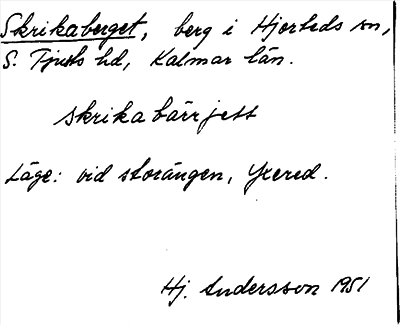 Skrikaberget, berg i Hjorteds sn,
S. Tjusts hd, Kalmar län.
skrika bärrjett
Läge: vid storängen, Yxered.
Hj. Andersson 1951